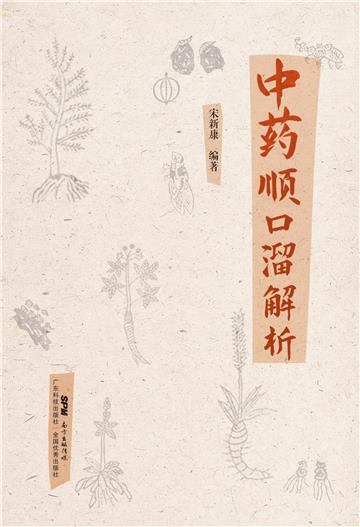 中药顺口溜解析
宋新康 编著
SPM
南方出版传媒
广东科技出版社 | 全国优秀出版社